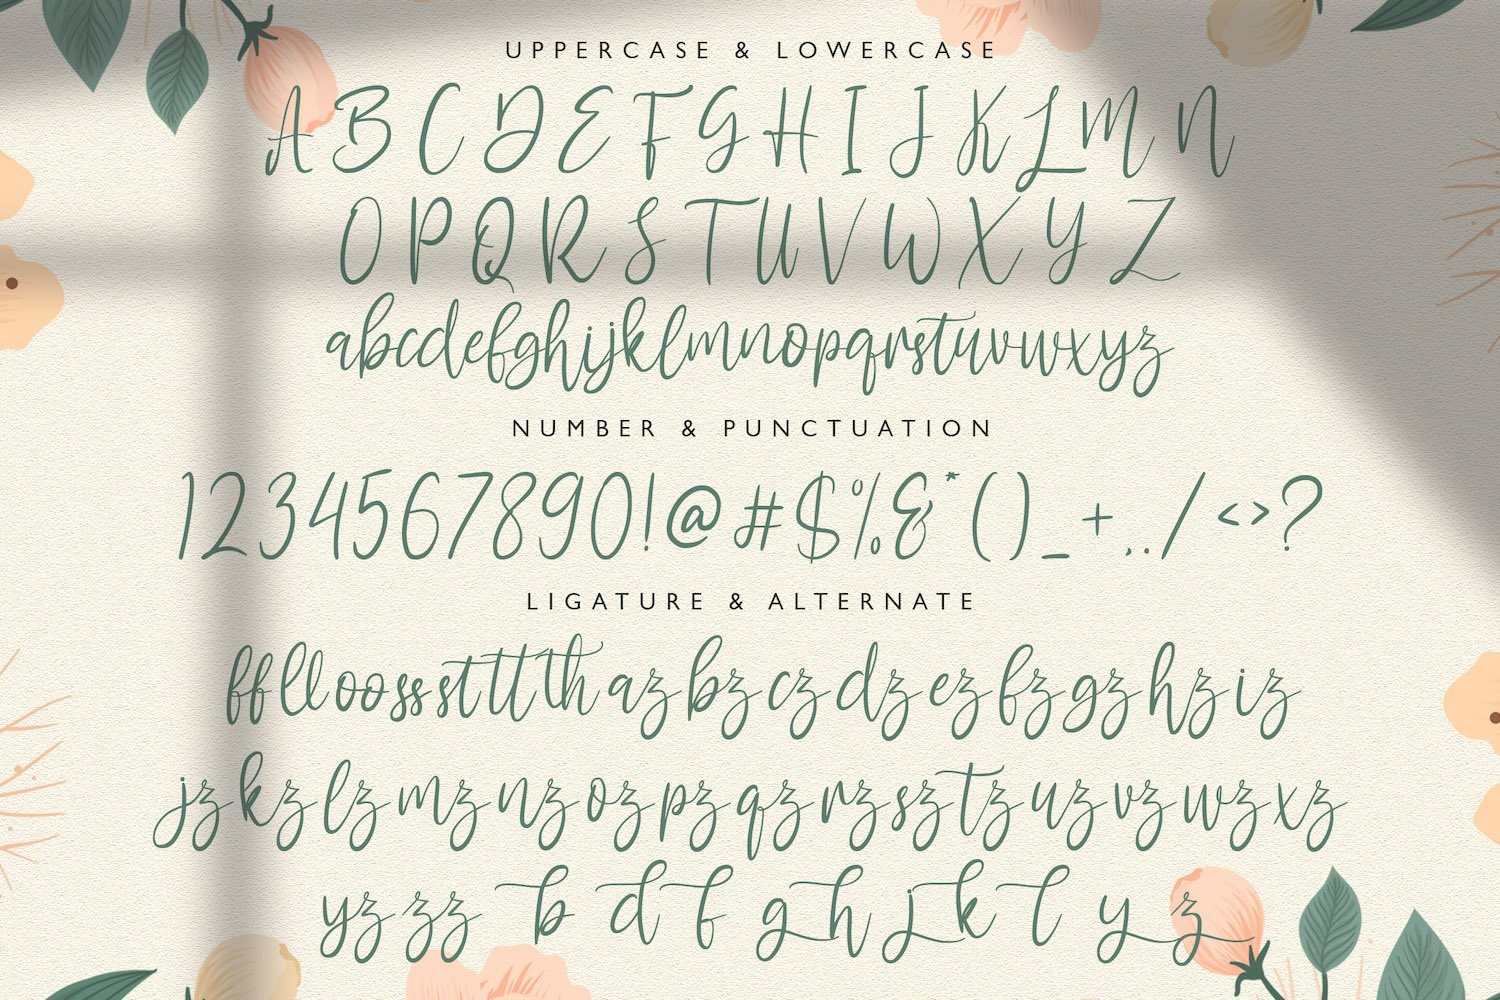 UPPERCASE & LOWERCASE
A B C D E F G H I J K L M N
O P Q R S T U V W X Y Z
abcdefghijklmnopqrstuvwxyz
NUMBER & PUNCTUATION
1234567890!@#$%&*()_+,./<>?
LIGATURE & ALTERNATE
ff ll oo ss st tt th az bz cz dz ez fz gz hz iz
jz kz lz mz nz oz pz qz rz sz tz uz vz wz xz
yz zz b d f g h j k l y z